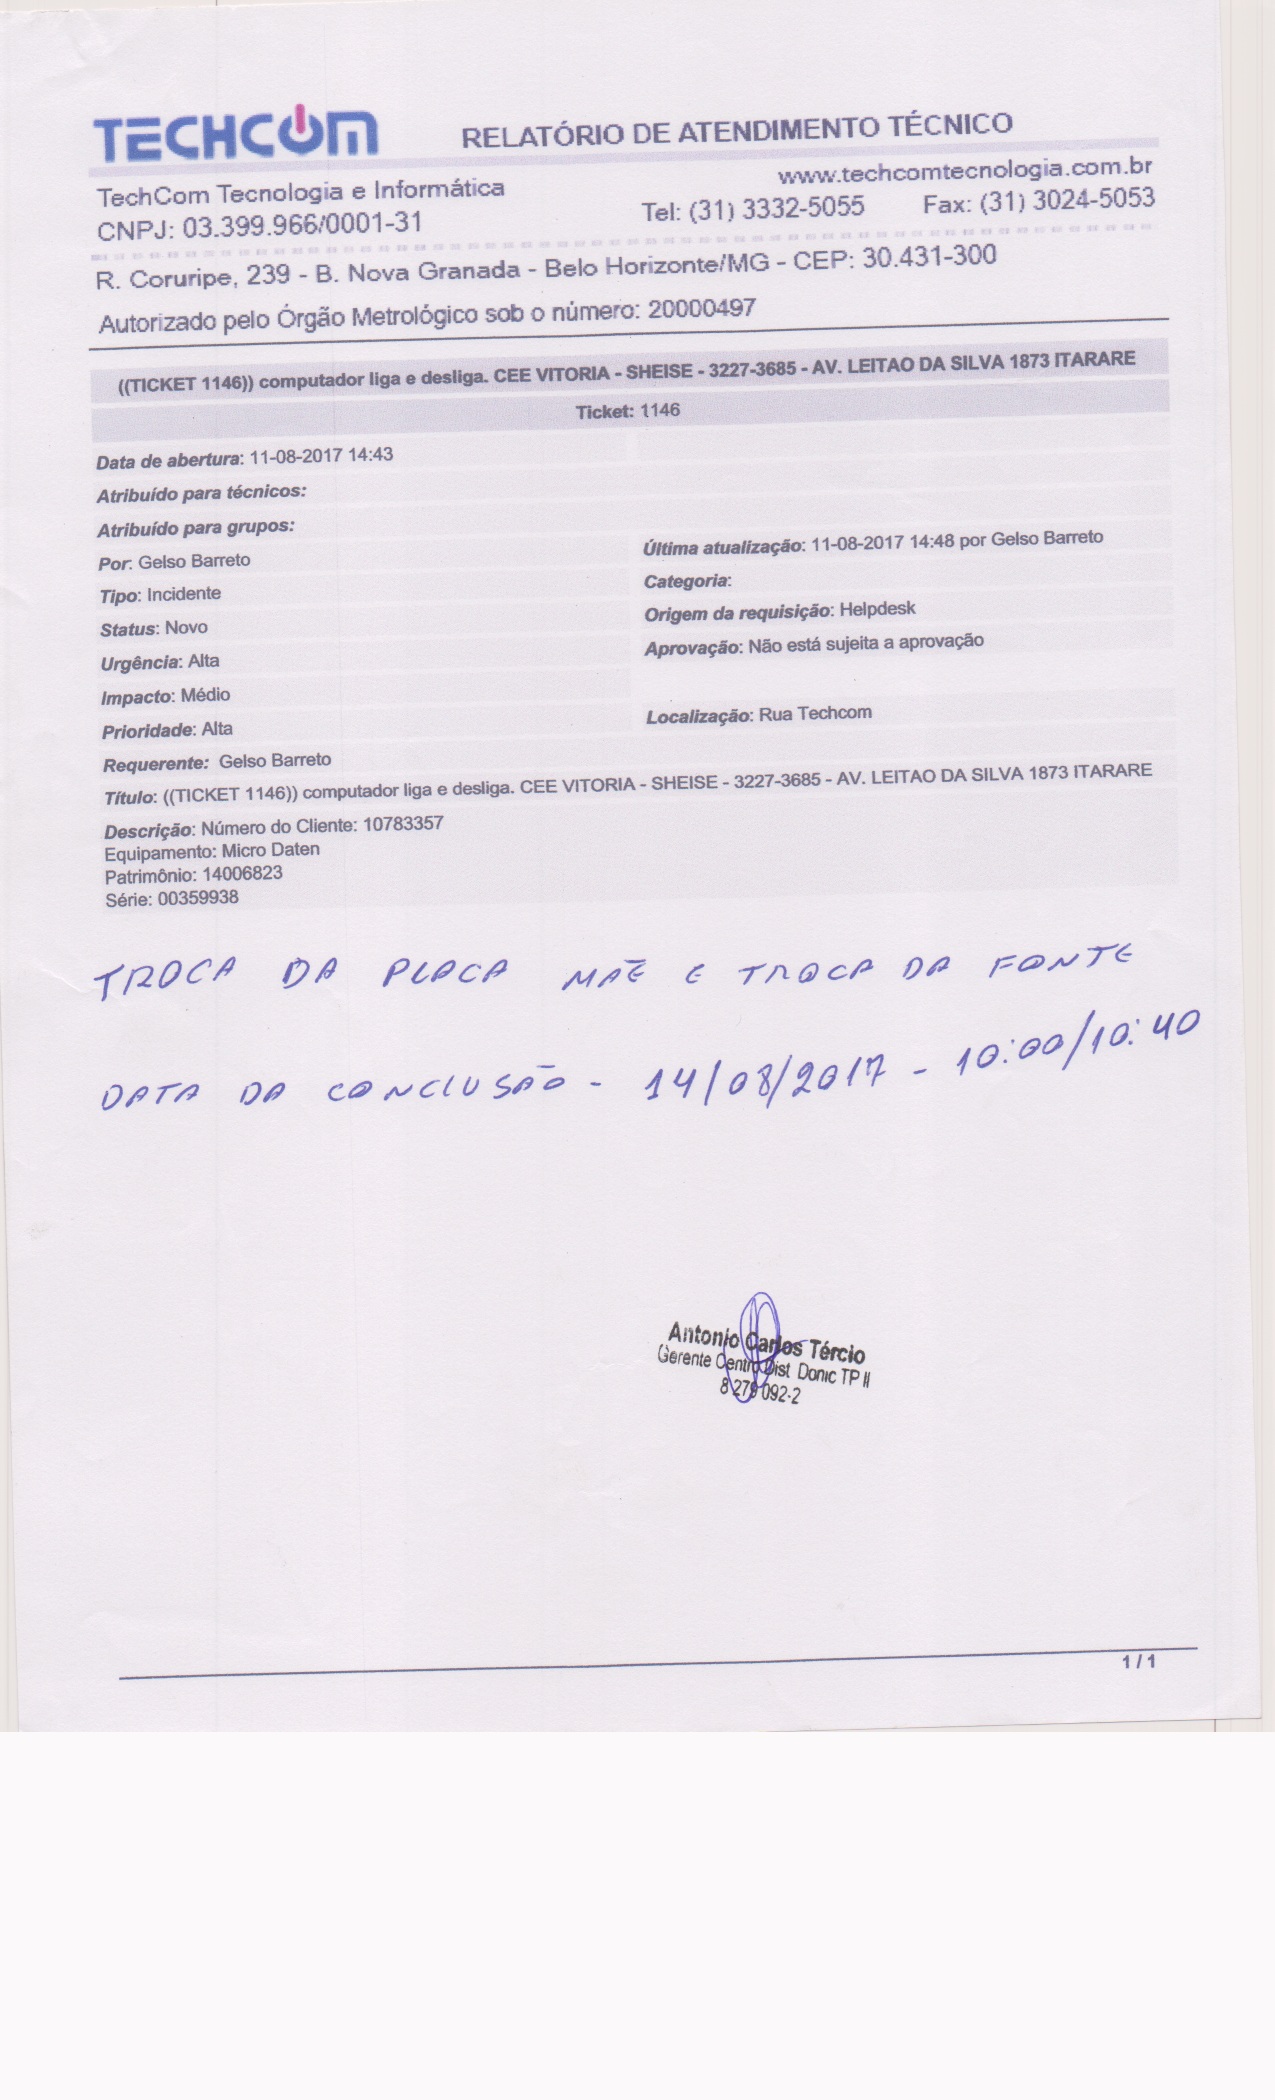 TECHCOM
RELATÓRIO DE ATENDIMENTO TÉCNICO
TechCom Tecnologia e Informática
www.techcomtecnologia.com.br
CNPJ: 03.399.966/0001-31
Tel: (31) 3332-5055 Fax: (31) 3024-5053
R. Coruripe, 239 - B. Nova Granada - Belo Horizonte/MG - CEP: 30.431-300
Autorizado pelo Órgão Metrológico sob o número: 20000497
((TICKET 1146)) computador liga e desliga. CEE VITORIA - SHEISE - 3227-3685 - AV. LEITAO DA SILVA 1873 ITARARE
Ticket: 1146
Data de abertura: 11-08-2017 14:43
Atribuído para técnicos:
Atribuído para grupos:
Por: Gelso Barreto
Última atualização: 11-08-2017 14:48 por Gelso Barreto
Tipo: Incidente
Categoria:
Status: Novo
Origem da requisição: Helpdesk
Urgência: Alta
Aprovação: Não está sujeita a aprovação
Impacto: Médio
Prioridade: Alta
Localização: Rua Techcom
Requerente: Gelso Barreto
Título: ((TICKET 1146)) computador liga e desliga. CEE VITORIA - SHEISE - 3227-3685 - AV. LEITAO DA SILVA 1873 ITARARE
Descrição: Número do Cliente: 10783357
Equipamento: Micro Daten
Patrimônio: 14006823
Série: 00359938
TROCA DA PLACA MÃE E TROCA DA FONTE
DATA DA CONCLUSÃO - 14/08/2017 - 10:00/10:40
Antonio Carlos Tércio
Gerente Centro Dist Donic TP II
8 279 092-2
1 / 1